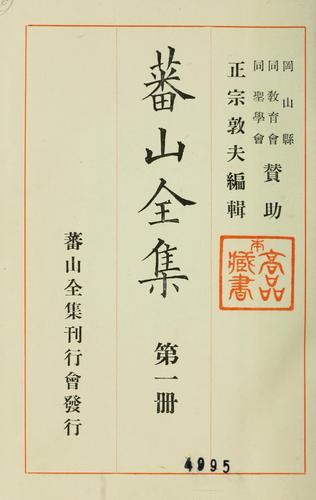 岡山縣
同教育會
同聖學會
贊助
正宗敦夫編輯
蕃山全集 第一册
蕃山全集刊行會發行
4995